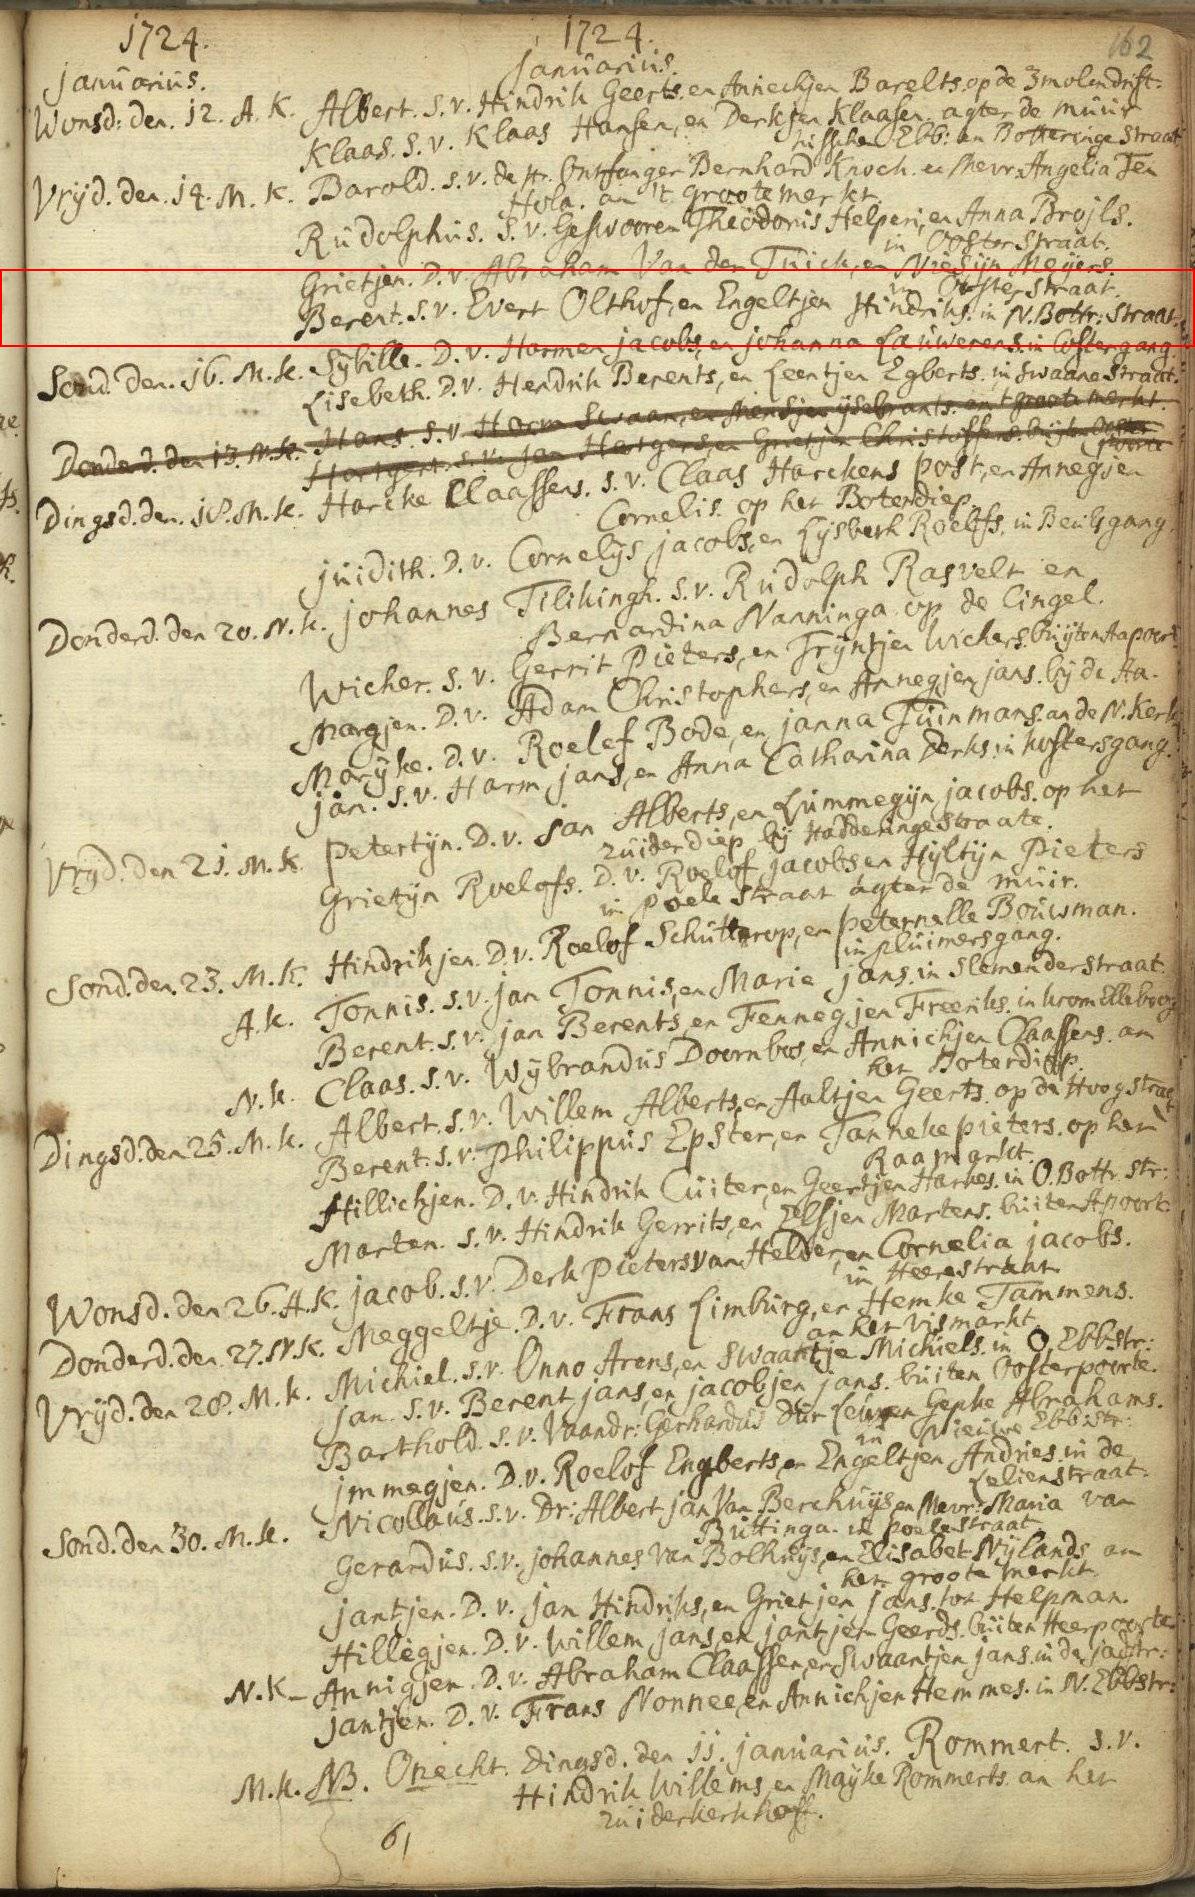 1724. 1724. 162
Januarius. Januarius.
Wonsd: den. 12. A. K. Albert. S. v. Hindrik Geerts. en Annechjen Barelts. op de 3molendrift.
Klaas. S. v. Klaas Hansen, en Derkjen Klaasen. agter de Muur
tusschen Ebb: en Botteringe Straat
Vrijd. den. 14. M. K. Barold. s. v. de Hr. Ontfanger Bernhard Knoch. en Mevr. Angelia Ten
Hola. an 't groote merkt.
Rudolphus. S. v. Geswooren Theodoris Helperi, en Anna Brojls.
in Ooster Straat.
Grietjen. D. v. Abraham Van der Tuick, en Niesijn Meyers.
in Ooster straat.
Berent. S. v. Evert Olthof, en Engeltjen Hindriks. in N. Bottr: Straat.
Sond. den. 16. M. K. Sybille. D. v. Harmen jacobs, en johanna Lauwerens. in Costergang.
Lisebeth. D. v. Hendrik Berents, en Leentjen Egberts. in Swaane Straat.
Donderd. den 13. M. K. Hans. S. v. Harm Swaan, en Mensjen ijsebrants. an 't groote merkt.
Hartgert. s. v. jan Hartgers, en Grietjen Christoffers. buijten Ooster
poorte
Dingsd. den. 18. M. K. Harcke Claassens. s. v. Claas Harckens post, en Annegjen
Cornelis. op het Boterdiep.
juidith. D. v. Cornelijs jacobs, en Lijsbeth Roelfs. in Beulsgang.
Donderd. den 20. N. K. johannes Tilikingh. S. v. Rudolph Rasvelt en
Bernardina Nanninga. op de Cingel.
Wicher. S. v. Gerrit Pieters, en Trijntjen Wichers. buijten Aapoort
Margjen. D. v. Adam Christophers, en Annegjen jans. bij de Aa.
Marijke. D. v. Roelef Bode, en janna Tuinmans. an de N. Kerk
jan. S. v. Harm jans, en Anna Catharina Derks. in kostersgang.
Vrijd. den 21. M. K. Petertijn. D. v. jan Alberts, en Lummegijn jacobs. op het
zuiderdiep bij Hadderinge Straate.
Grietijn Roelofs. D. v. Roelof jacobs en Hijltijn Pieters
in poele straat agter de muir.
Sond. den. 23. M. K. Hindrikjen. D. v. Roelof Schutterop, en Peternelle Bouwsman.
in pluimersgang.
A. K. Tonnis. S. v. jan Tonnis, en Marie jans. in Slemenderstraat.
Berent. S. v. jan Berents, en Fennegjen Freeriks. in krom Elleboog
N. K. Claas. S. v. Wijbrandus Doornbos, en Annichjen Claassens. an
het Boterdiep.
Dingsd. den 25. M. K. Albert. S. v. Willem Alberts, en Aaltjen Geerts. op de Hoogstraat
Berent. s. v. Philippus Epster, en Tanneke pieters. op het
Raamarkt.
Hillichjen. D. v. Hindrik Cuiter, en Geertjen Harkes. in O. Bottr. str:
Marten. S. v. Hindrik Gerrits, en Elsjen Martens. buiten Apoort
Wonsd. den 26. A. K. jacob. s. v. Derk Pieters van Helder, en Cornelia jacobs.
in Heerestraat.
Donderd. den 27. N. K. Meggeltje. D. v. Frans Limburg, en Hemke Tammens.
an het vismarkt.
Vrijd. den 28. M. K. Michiel. s. v. Onno Arens, en Swaantje Michiels. in O. Ebbstr:
jan. S. v. Berent jans, en jacobjen jans. buiten Oosterpoorte.
Barthold. s. v. Vaandr: Gerhardus Dur Leuwen Gepke Abrahams.
in Nieuwe Ebbestr:
jmmegjen. D. v. Roelof Engberts, en Engeltjen Andries. in de
Lelienstraat.
Sond. den 30. M. K. Nicollaus. s. v. Dr: Albert jan Van Berchuijs en Mevr: Maria van
Buttinga. in poelestraat
Gerardus. s. v. johannes Van Bolhuijs, en Elisabet Nijlands. an
het groote merkt.
jantjen. D. v. jan Hindriks, en Grietjen jans. tot Helpman.
Hillegjen. D. v. Willem jans, en jantjen Geerds. buiten Heerpoorte
N. K – Annigjen. D. v. Abraham Claassen, en Swaantjen jans. in de jacstr:
jantjen. D. v. Frans Nonnee, en Annichjen Hemmes. in N. Ebbstr:
M. K. NB. Onecht. Dingsd. den 11. januarius. Rommert. s. v.
Hindrik Willems, en Maijke Rommerts. an het
zuiderkerkhoff.
61